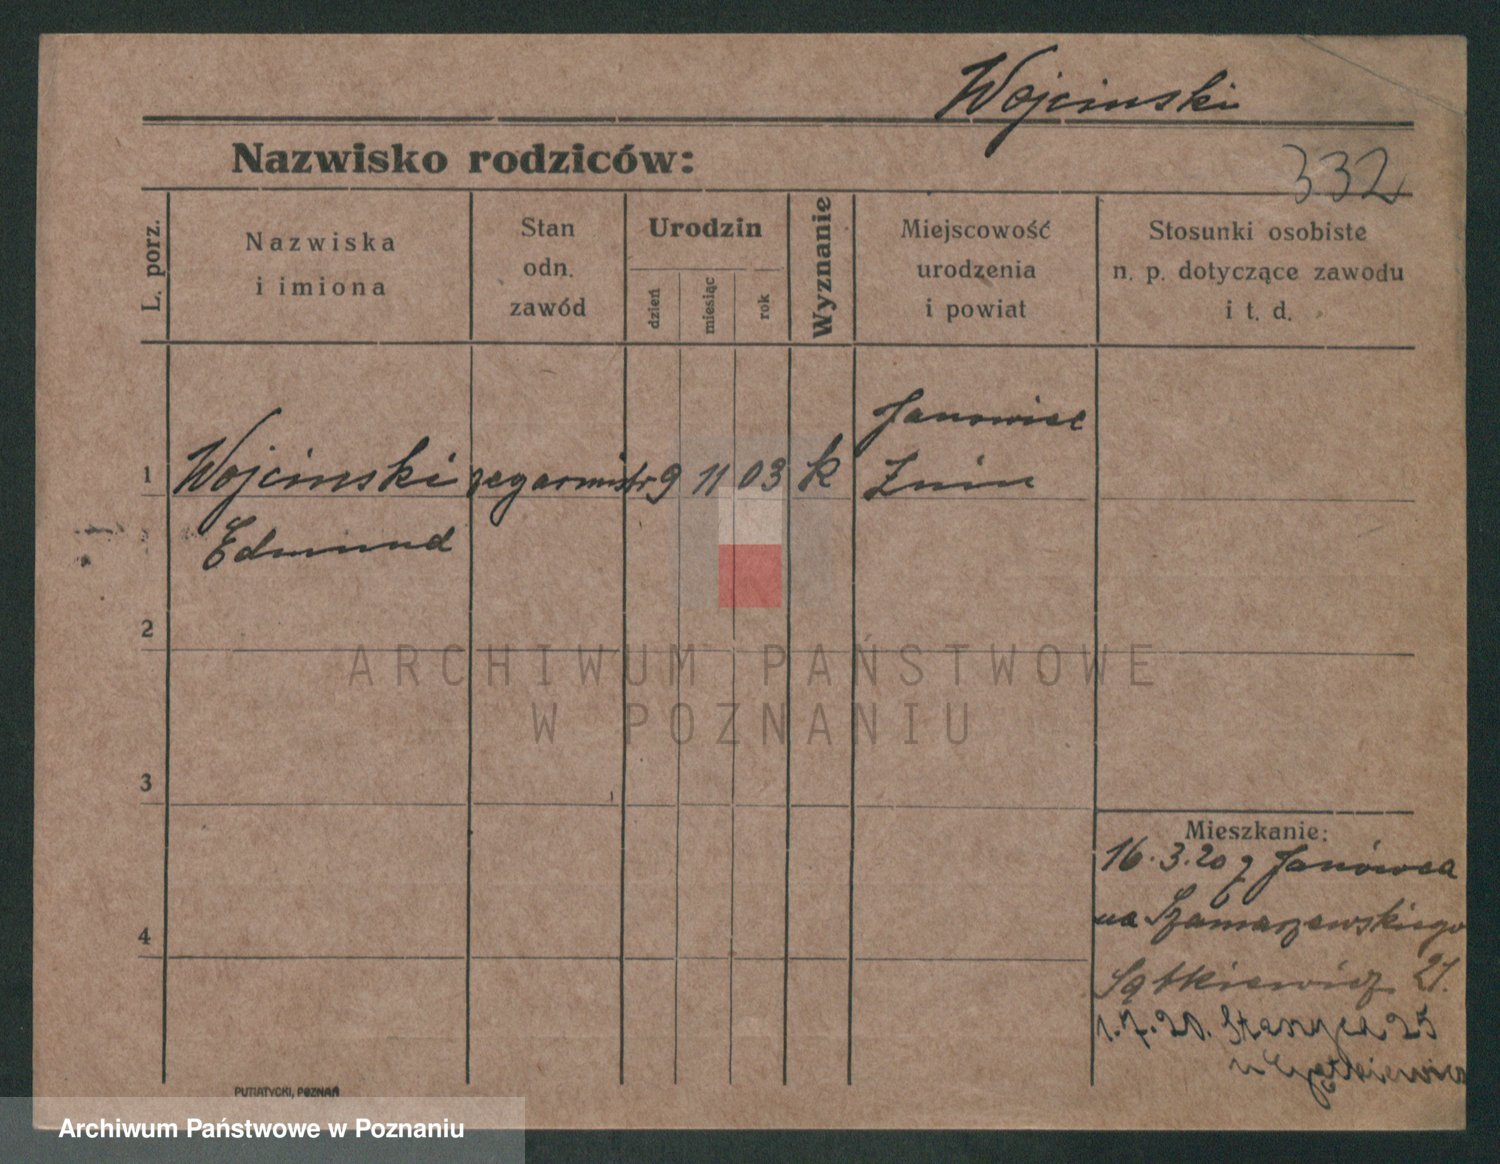 Wojcinski
Nazwisko rodziców:
332
L. porz.
Nazwiska
i imiona
Stan
odn.
zawód
Urodzin
dzień
miesiąc
rok
Wyznanie
Miejscowość
urodzenia
i powiat
Stosunki osobiste
n. p. dotyczące zawodu
i t. d.
Janowiec
1 Wojcinski zegarmistr 9 11 03 k Znin
Edmund
2
ARCHIWUM PAŃSTWOWE
W POZNANIU
3
Mieszkanie:
16.3.20 z Janówca
na Szamarzewskiego
4
Sątkiewicz 21.
1.7.20. Staszyca 25
u
PUTIATYCKI, POZNAŃ
Archiwum Państwowe w Poznaniu